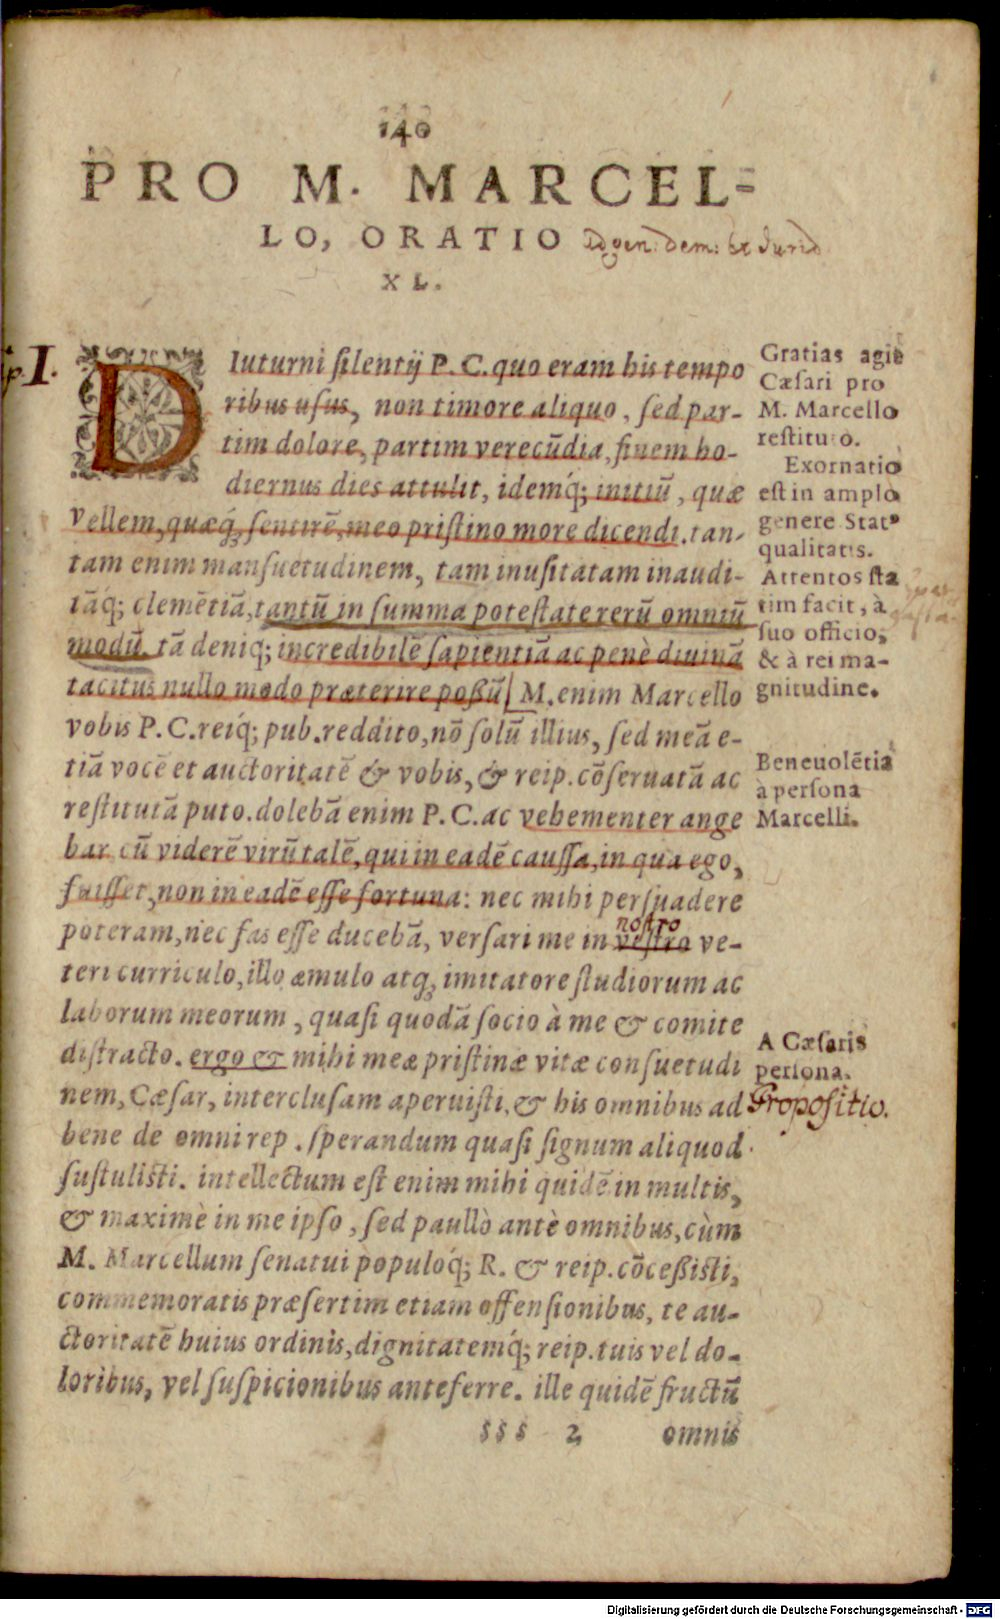 140
PRO M. MARCEL-
LO, ORATIO
XL.
I.
DIuturni ſilentij P. C. quo eram his tempo
ribus uſus, non timore aliquo, ſed par-
tim dolore, partim verecūdia, finem ho-
diernus dies attulit, idemq́; initiū, quæ
vellem, quæq́ ſentirē, meo priſtino more dicendi. tan-
tam enim manſuetudinem, tam inuſitatam inaudi-
tāq́; clemētiā, tantū in ſumma poteſtate rerū omniū
modū, tā deniq; incredibilē ſapientiā ac penè diuinā
tacitus nullo modo præterire poßū. M. enim Marcello
vobis P. C. reiq́; pub. reddito, nō ſolū illius, ſed meā e-
tiā vocē et auctoritatē & vobis, & reip. cōſeruatā ac
reſtitutā puto. dolebā enim P. C. ac vehementer ange
bar, cū viderē virū talē, qui in eadē cauſſa, in qua ego,
fuiſſet, non in eadē eſſe fortuna: nec mihi perſuadere
poteram, nec fas eſſe ducebā, verſari me in veſtro ve-
nostro
teri curriculo, illo æmulo atq; imitatore ſtudiorum ac
laborum meorum, quaſi quodā ſocio à me & comite
diſtracto. ergo & mihi meæ priſtinæ vitæ conſuetudi
nem, Cæſar, intercluſam aperuiſti, & his omnibus ad
bene de omni rep. ſperandum quaſi ſignum aliquod
ſuſtuliſti. intellectum eſt enim mihi quidē in multis,
& maximè in me ipſo, ſed paullò antè omnibus, cùm
M. Marcellum ſenatui populoq́; R. & reip. cōceßiſti,
commemoratis præſertim etiam offenſionibus, te au-
ctoritatē huius ordinis, dignitatemq́; reip. tuis vel do-
loribus, vel ſuſpicionibus anteferre. ille quidē fructū
ſſſ 2 omnis
Gratias agit
Cæſari pro
M. Marcello
reſtituto.
Exornatio
eſt in amplo
genere Statꝰ
qualitatis.
Attentos ſta
tim facit, à
ſuo officio,
& à rei ma-
gnitudine.
Beneuolētia
à perſona
Marcelli.
A Cæſaris
perſona.
Propositio.
Digitalisierung gefördert durch die Deutsche Forschungsgemeinschaft - DFG